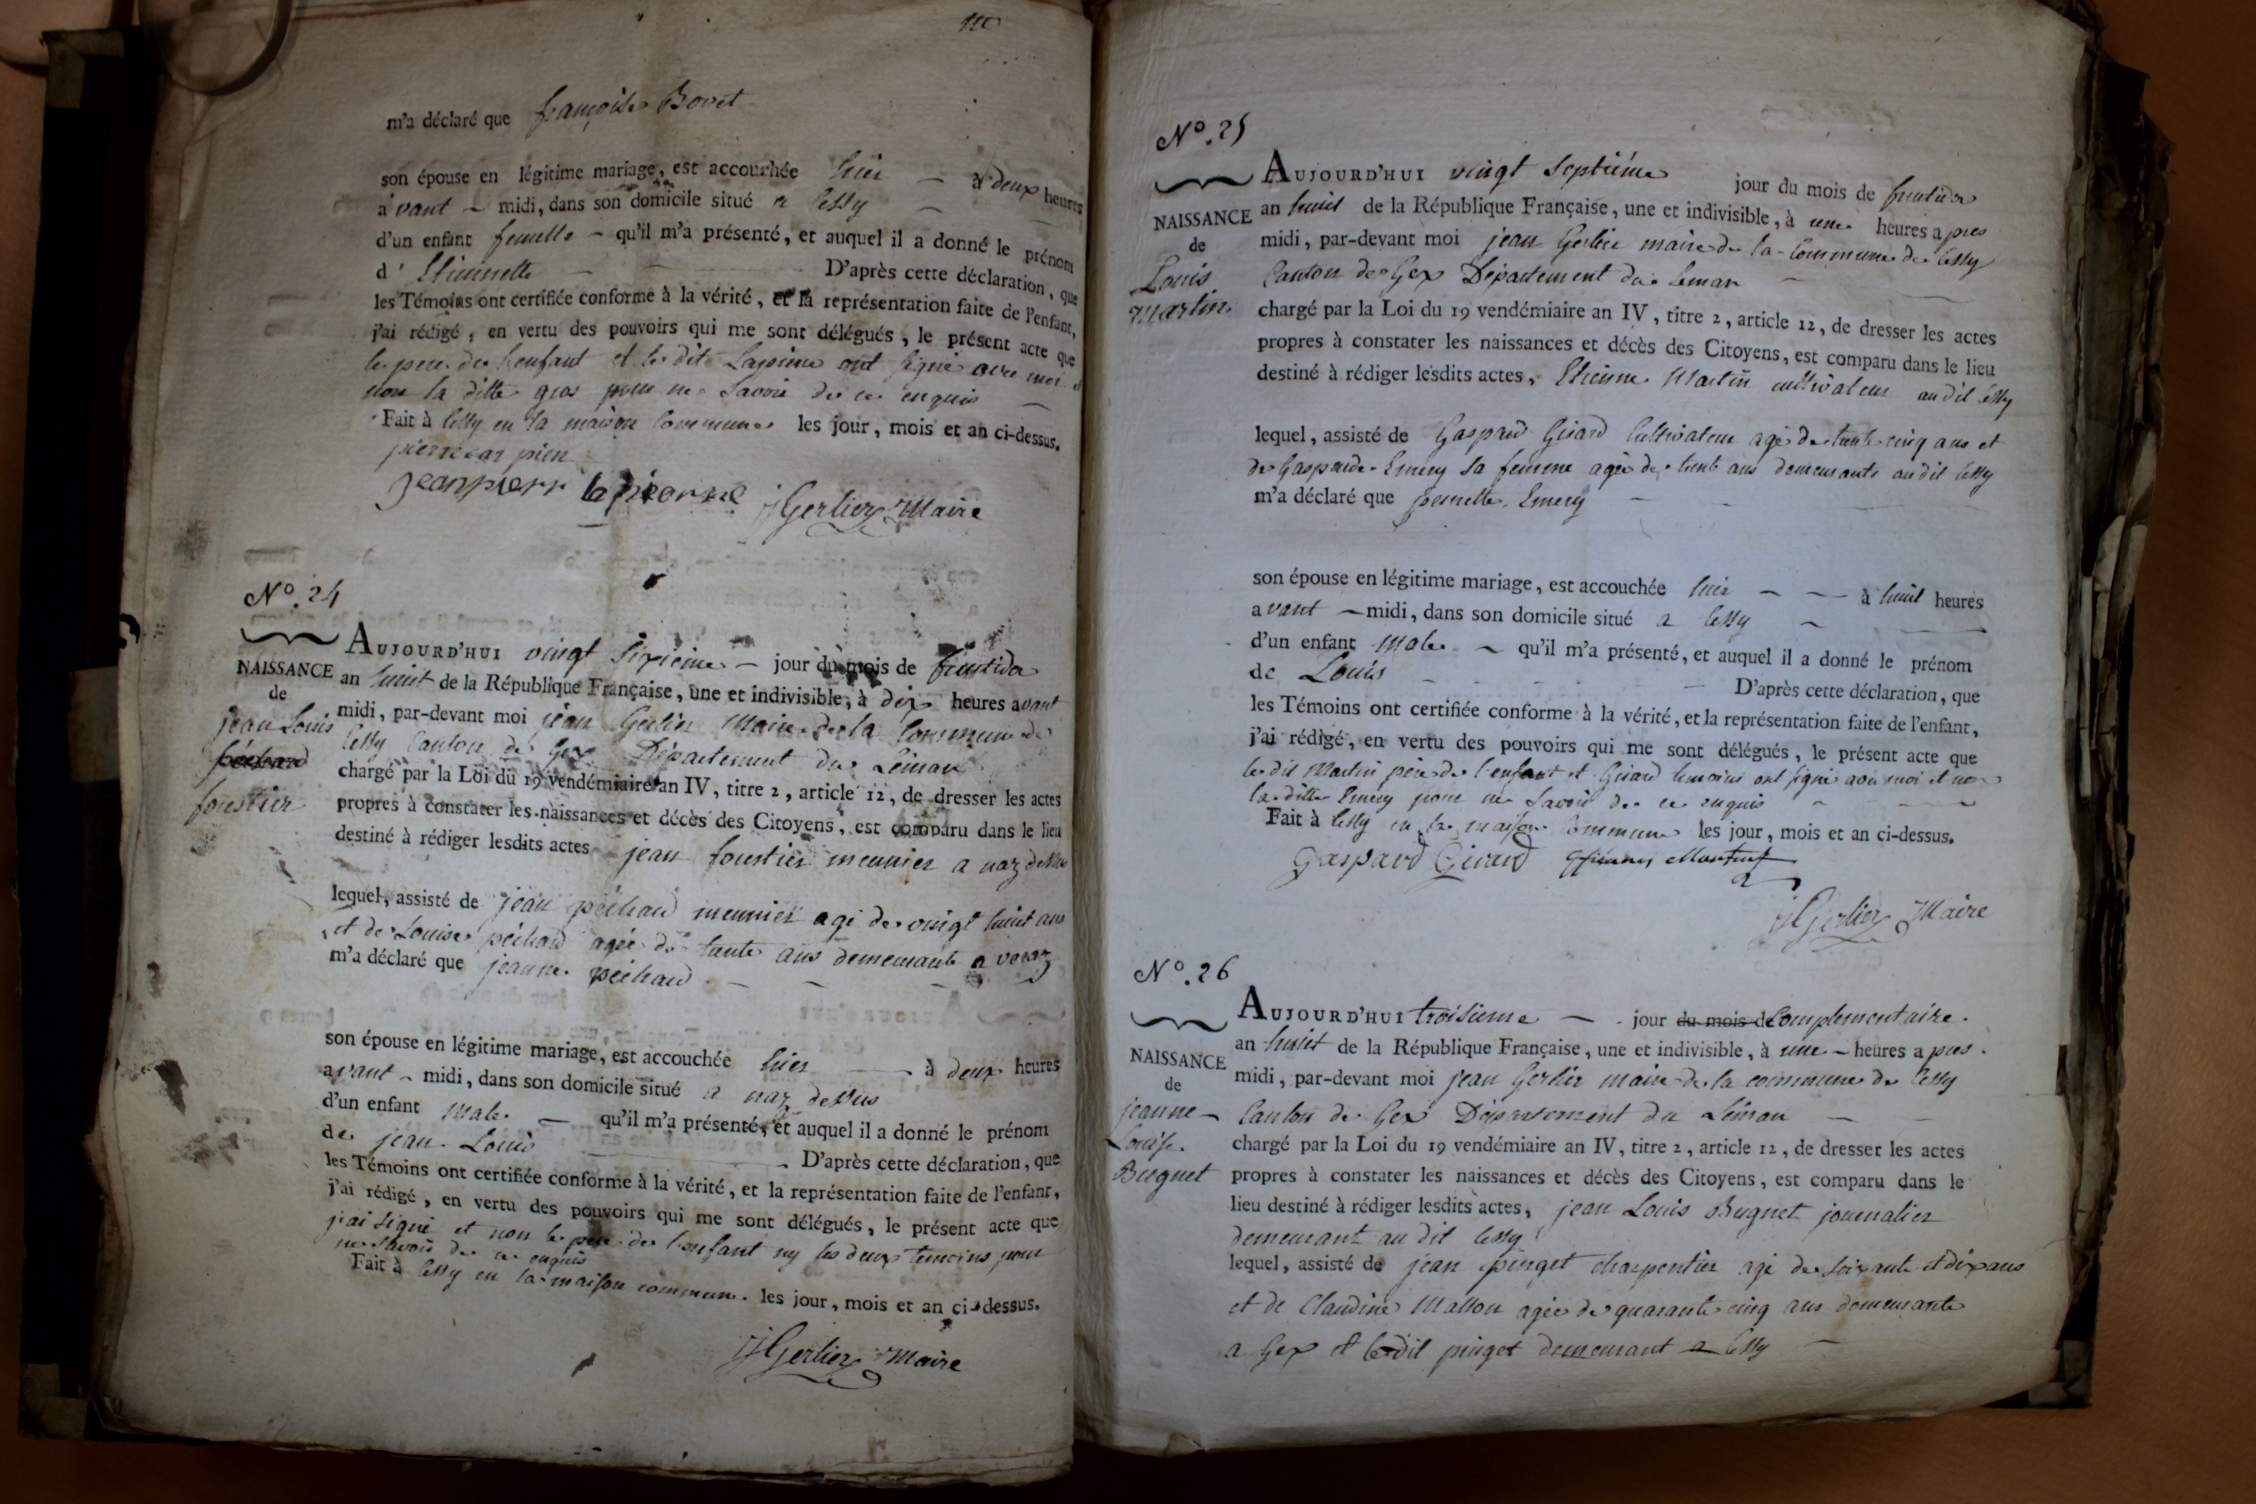 m'a déclaré que françoise Bovet
son épouse en légitime mariage, est accouchée hier — à deux heures
avant — midi, dans son domicile situé a Cessy —
d'un enfant femelle — qu'il m'a présenté, et auquel il a donné le prénom
d' Etiennette — D'après cette déclaration, que
les Témoins ont certifiée conforme à la vérité, et la représentation faite de l'enfant,
j'ai rédigé, en vertu des pouvoirs qui me sont délégués, le présent acte que
le pere de l'enfant et le dit Lapierre ont signé avec moi et
non la ditte gros pour ne savoir de ce enquis —
Fait à Cessy en la maison Commune les jour, mois et an ci-dessus.
jeanpierr
JGerlier Maire
N°. 24
AUJOURD'HUI vingt sixieme — jour du mois de fructidor
NAISSANCE
de
jean Louis
foustier
an huit de la République Française, une et indivisible, à dix heures avant
midi, par-devant moi jean Gerlier Maire de la Commune de
Cessy Canton de Gex Département du Léman
chargé par la Loi du 19 vendémiaire an IV, titre 2, article 12, de dresser les actes
propres à constater les naissances et décès des Citoyens, est comparu dans le lieu
destiné à rédiger lesdits actes jean foustier meunier a naz
lequel, assisté de jean péchard meunier agé de vingt huit ans
et de Louise péchard agée de trente ans demeurants a
m'a déclaré que jeanne péchard — — — —
son épouse en légitime mariage, est accouchée hier — à deux heures
avant — midi, dans son domicile situé a naz dessus
d'un enfant male — qu'il m'a présenté, et auquel il a donné le prénom
de jean Louis — D'après cette déclaration, que
les Témoins ont certifiée conforme à la vérité, et la représentation faite de l'enfant,
j'ai rédigé, en vertu des pouvoirs qui me sont délégués, le présent acte que
j'ai signé et non le pere de l'enfant ny les deux temoins pour
ne savoir de ce enquis
Fait à Cessy en la maison commune les jour, mois et an ci-dessus.
JGerlier Maire
N°. 25
AUJOURD'HUI vingt septiéme jour du mois de fructidor
NAISSANCE
de
Louis
Martin
an huit de la République Française, une et indivisible, à une heures apres
midi, par-devant moi jean Gerlier maire de la Commune de Cessy
Canton de Gex Département du Léman —
chargé par la Loi du 19 vendémiaire an IV, titre 2, article 12, de dresser les actes
propres à constater les naissances et décès des Citoyens, est comparu dans le lieu
destiné à rédiger lesdits actes, Etienne Martin cultivateur au dit Cessy
lequel, assisté de Gaspard Girard Cultivateur agé de trente cinq ans et
de Gasparde Emery sa femme agée de trente ans demeurants au dit Cessy
m'a déclaré que pernette Emery — —
son épouse en légitime mariage, est accouchée hier — — à huit heures
avant — midi, dans son domicile situé a Cessy —
d'un enfant Male — qu'il m'a présenté, et auquel il a donné le prénom
de Louis — D'après cette déclaration, que
les Témoins ont certifiée conforme à la vérité, et la représentation faite de l'enfant,
j'ai rédigé, en vertu des pouvoirs qui me sont délégués, le présent acte que
le dit Martin pere de l'enfant et Girard temoins ont signé avec moi et non
la ditte Emery pour ne savoir de ce enquis —
Fait à Cessy en la maison Commune les jour, mois et an ci-dessus.
Gaspard Girard
JGerlier Maire
N°. 26
AUJOURD'HUI troisieme — jour du mois de Complementaire.
NAISSANCE
de
jeanne
Louise
Bugnet
an huit de la République Française, une et indivisible, à une — heures apres.
midi, par-devant moi jean Gerlier maire de la commune de Cessy
Canton de Gex Département du Léman — —
chargé par la Loi du 19 vendémiaire an IV, titre 2, article 12, de dresser les actes
propres à constater les naissances et décès des Citoyens, est comparu dans le
lieu destiné à rédiger lesdits actes, jean Louis Bugnet journalier
demeurant au dit Cessy
lequel, assisté de jean pinget charpentier agé de soixante et dix ans
et de Claudine Masson agée de quarante cinq ans demeurante
a Gex et ledit pinget demeurant a Cessy —